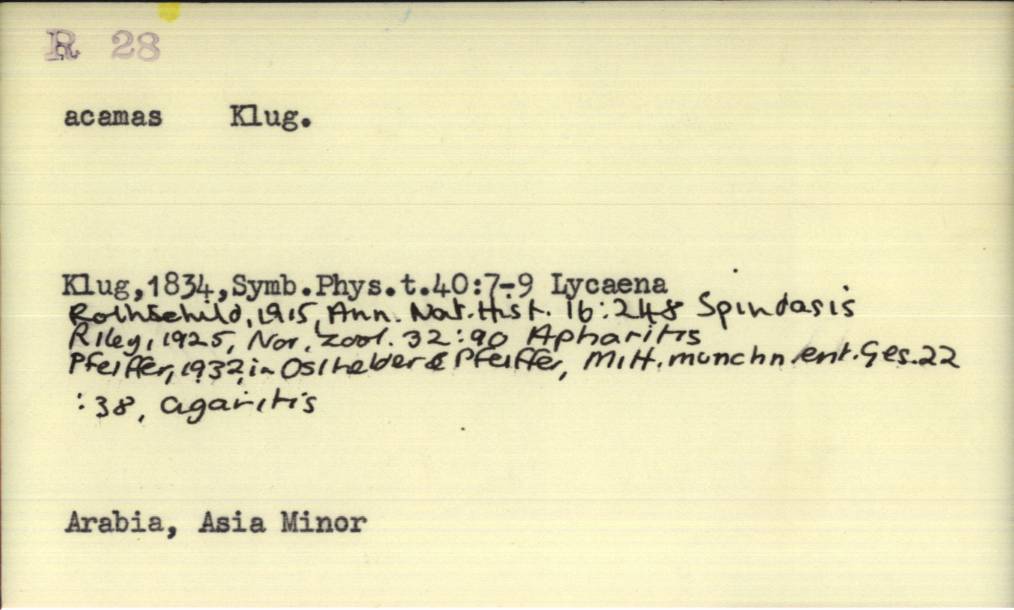 R 28
acamas Klug.
Klug,1834,Symb.Phys.t.40:7-9 Lycaena
Rothschild, 1915, Ann. Nat. Hist. 16:248 Spindasis
Riley, 1925, Nov. Zool. 32:90 Apharitis
Pfeiffer, 1932, in Osthelder & Pfeiffer, Mitt. munchn. ent. Ges. 22
:38, Cigaritis
Arabia, Asia Minor